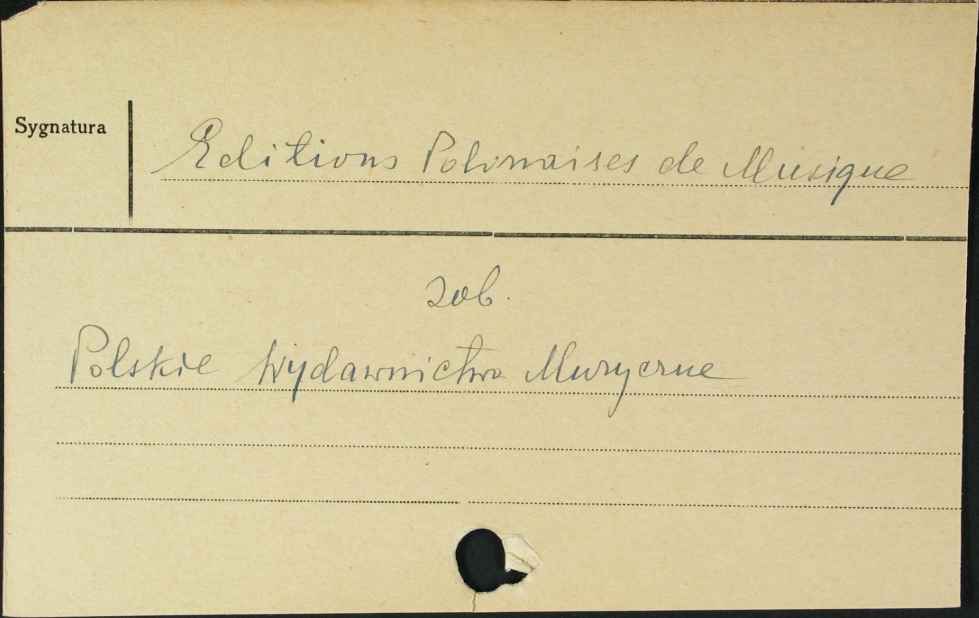 Sygnatura
Editions Polonaises de Musique
zob.
Polskie Wydawnictwo Muzyczne